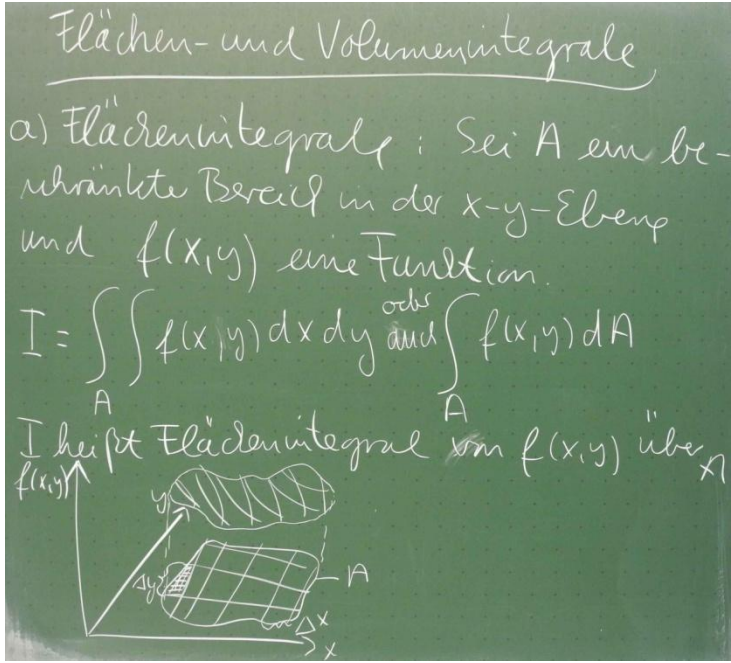 Flächen- und Volumenintegrale
a) Flächenintegrale : Sei A ein be-
schränkte Bereich in der x-y-Ebene
und f(x,y) eine Funktion.
I = ∫∫ f(x,y) dx dy oder auch ∫ f(x,y) dA
A A
I heißt Flächenintegral von f(x,y) über A
f(x,y)
y
A
Δy
Δx
x